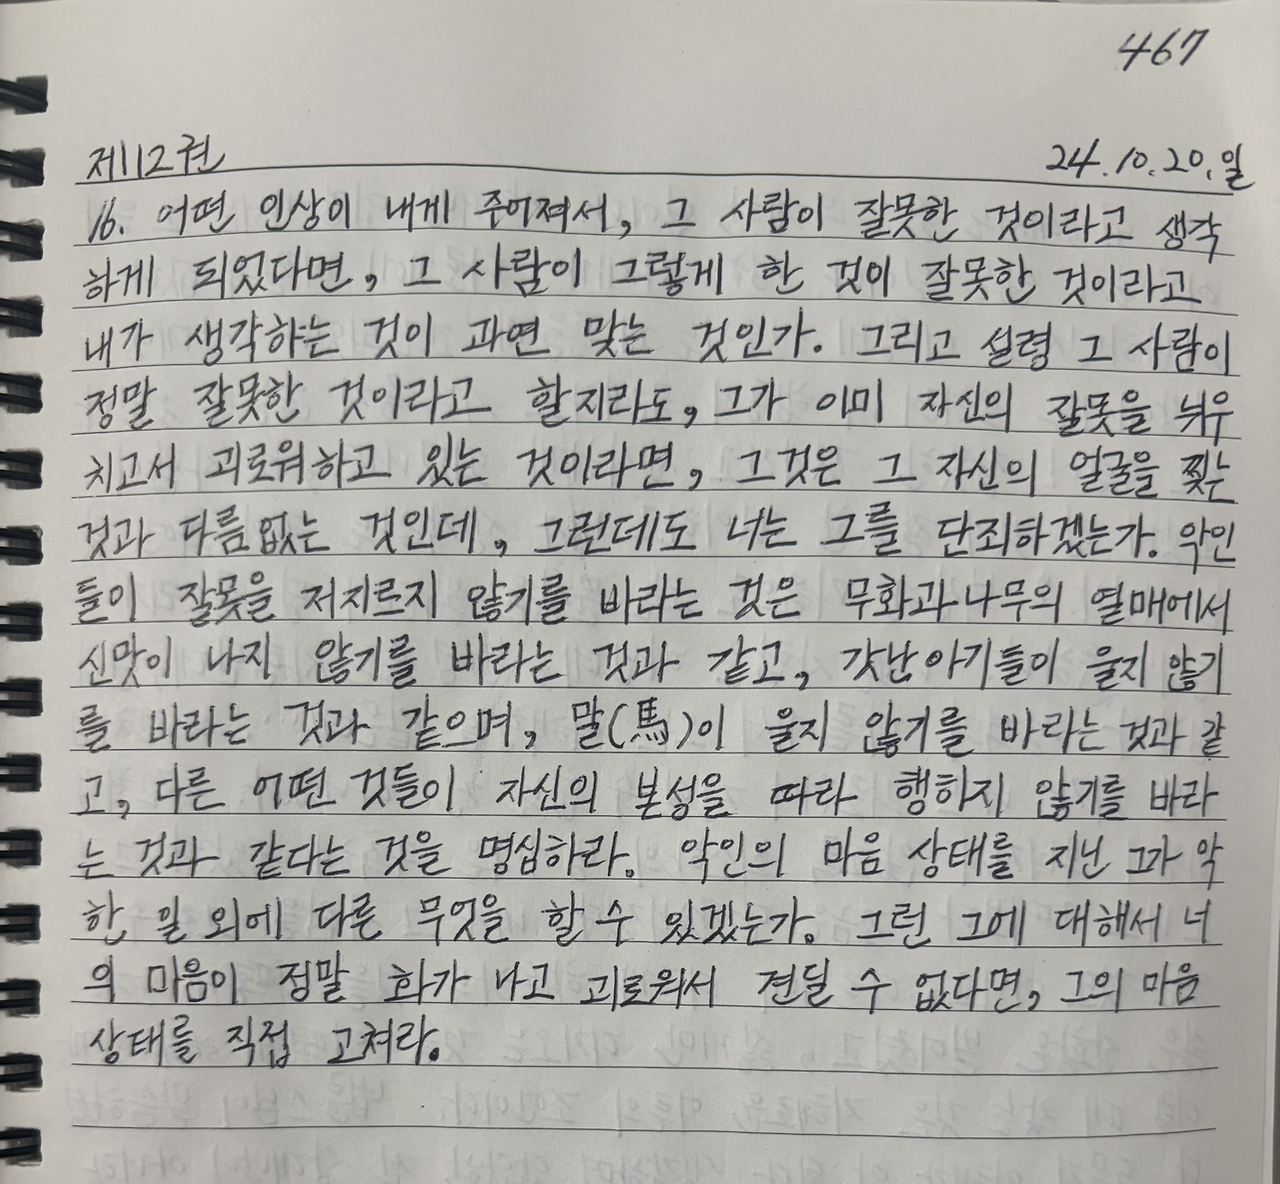 467
제112권 24.10.20.일
16. 어떤 인상이 내게 주어져서, 그 사람이 잘못한 것이라고 생각
하게 되었다면, 그 사람이 그렇게 한 것이 잘못한 것이라고
내가 생각하는 것이 과연 맞는 것인가. 그리고 설령 그 사람이
정말 잘못한 것이라고 할지라도, 그가 이미 자신의 잘못을 뉘우
치고서 괴로워하고 있는 것이라면, 그것은 그 자신의 얼굴을 찢는
것과 다름없는 것인데, 그런데도 너는 그를 단죄하겠는가. 악인
들이 잘못을 저지르지 않기를 바라는 것은 무화과나무의 열매에서
신맛이 나지 않기를 바라는 것과 같고, 갓난아기들이 울지 않기
를 바라는 것과 같으며, 말(馬)이 울지 않기를 바라는 것과 같
고, 다른 어떤 것들이 자신의 본성을 따라 행하지 않기를 바라
는 것과 같다는 것을 명심하라. 악인의 마음 상태를 지닌 그가 악
한 일 외에 다른 무엇을 할 수 있겠는가. 그런 그에 대해서 너
의 마음이 정말 화가 나고 괴로워서 견딜 수 없다면, 그의 마음
상태를 직접 고쳐라.